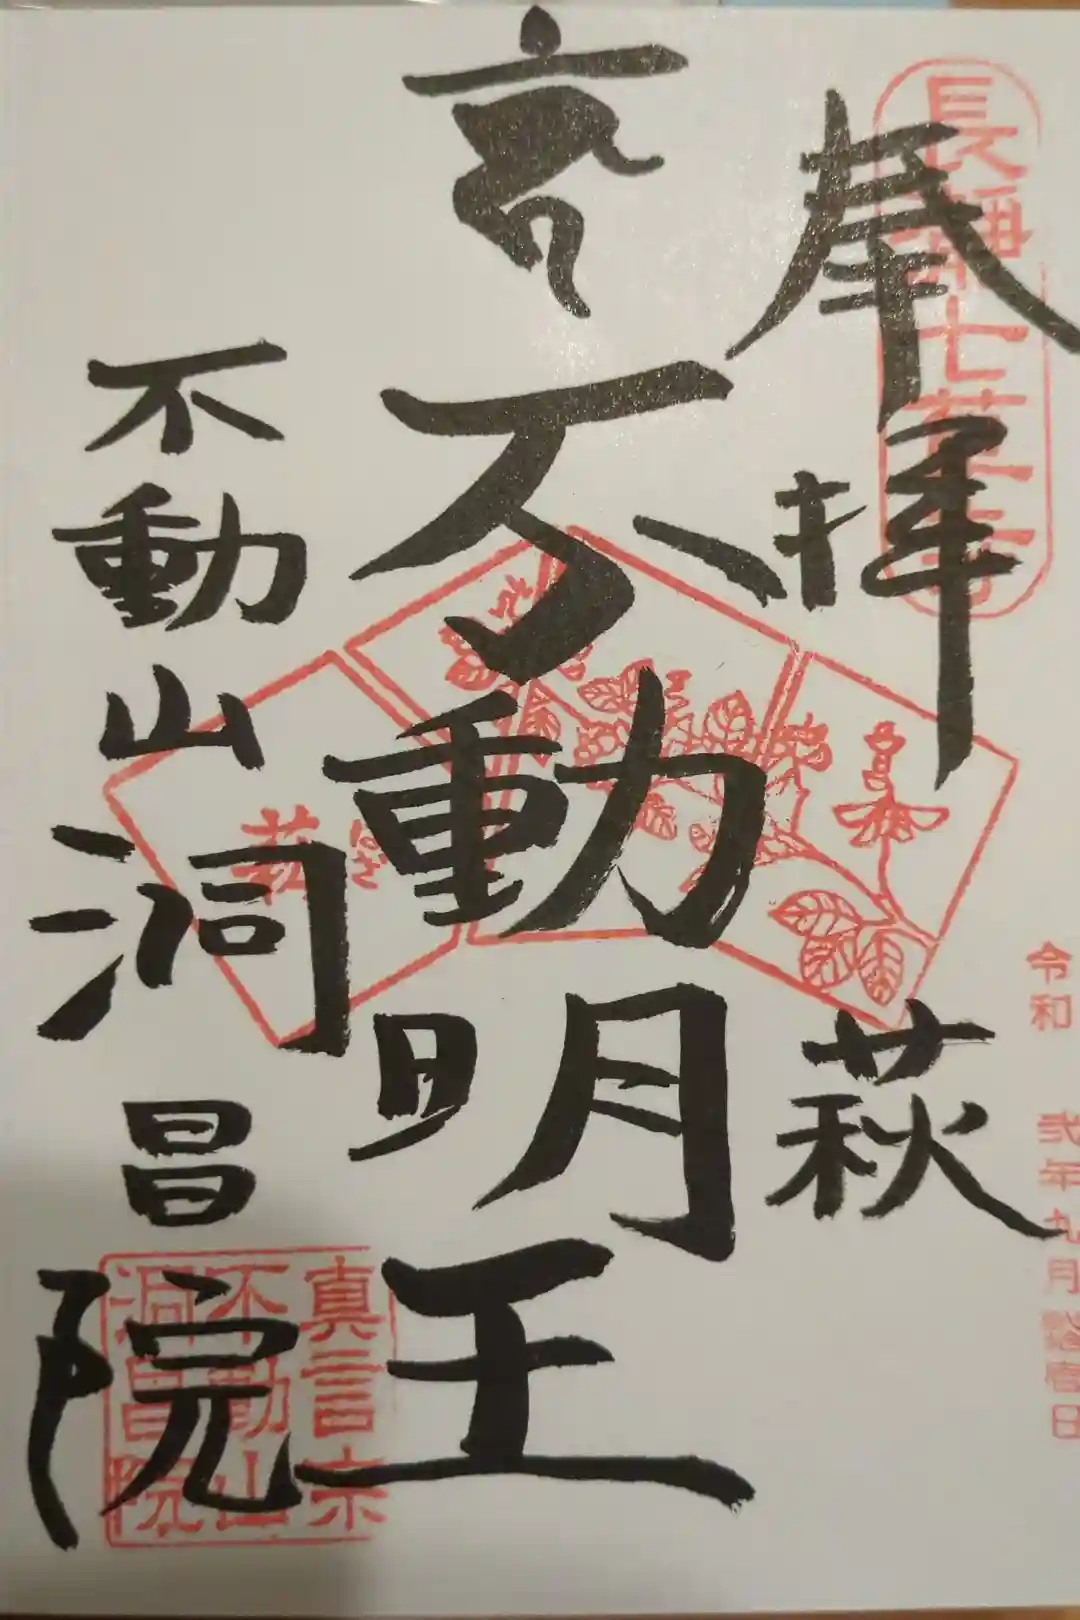 長瀞七草寺
奉拝
萩
令和 弐年九月 日
不動明王
萩
不動山洞昌院
真言宗
不動山
洞昌院